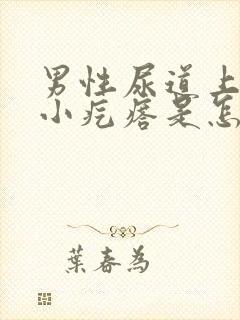 男性尿道上
小疙瘩是怎
葉春為